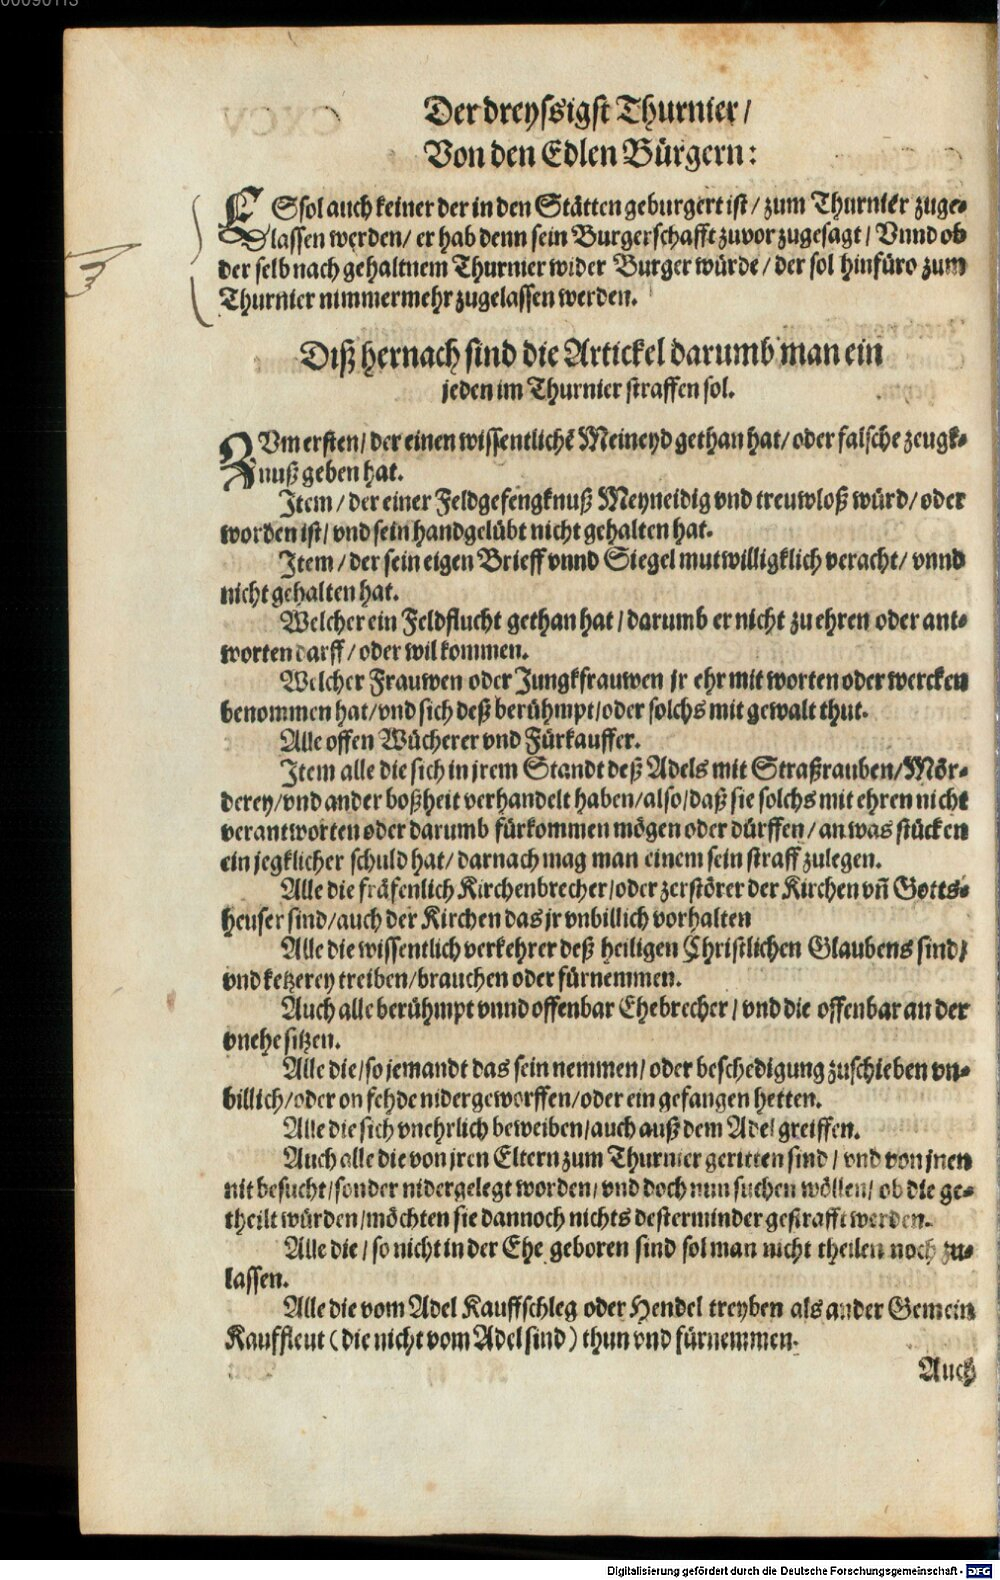 Der dreyssigst Thurnier /
Von den Edlen Bürgern:
ES sol auch keiner der in den Stätten geburgert ist / zum Thurnier zuge-
lassen werden / er hab denn sein Burgerschafft zuvor zugesagt / Vnnd ob
der selb nach gehaltnem Thurnier wider Burger würde / der sol hinfüro zum
Thurnier nimmermehr zugelassen werden.
Diß hernach sind die Artickel darumb man ein
jeden im Thurnier straffen sol.
ZVm ersten / der einen wissentlichē Meineyd gethan hat / oder falsche zeugk-
nuß geben hat.
Item / der einer Feldgefengknuß Meyneidig vnd treuwloß würd / oder
worden ist / vnd sein handgelübt nicht gehalten hat.
Item / der sein eigen Brieff vnnd Siegel mutwilligklich veracht / vnnd
nicht gehalten hat.
Welcher ein Feldflucht gethan hat / darumb er nicht zu ehren oder ant-
worten darff / oder wil kommen.
Welcher Frauwen oder Jungkfrauwen jr ehr mit worten oder wercken
benommen hat / vnd sich deß berühmpt / oder solchs mit gewalt thut.
Alle offen Wücherer vnd Fürkauffer.
Item alle die sich in jrem Standt deß Adels mit Straßrauben / Mör-
derey / vnd ander boßheit verhandelt haben / also / daß sie solchs mit ehren nicht
verantworten oder darumb fürkommen mögen oder dürffen / an was stücken
ein jegklicher schuld hat / darnach mag man einem sein straff zulegen.
Alle die fräfenlich Kirchenbrecher / oder zerstörer der Kirchen vn̄ Gotts-
heuser sind / auch der Kirchen das jr vnbillich vorhalten
Alle die wissentlich verkehrer deß heiligen Christlichen Glaubens sind /
vnd ketzerey treiben / brauchen oder fürnemmen.
Auch alle berühmpt vnnd offenbar Ehebrecher / vnd die offenbar an der
vnehe sitzen.
Alle die / so jemandt das sein nemmen / oder beschedigung zuschieben vn-
billich / oder on fehde nidergeworffen / oder ein gefangen hetten.
Alle die sich vnehrlich beweiben / auch auß dem Adel greiffen.
Auch alle die von jren Eltern zum Thurnier geritten sind / vnd von jnen
nit besucht / sonder nidergelegt worden / vnd doch nun suchen wöllen / ob die ge-
theilt würden / möchten sie dannoch nichts desterminder gestrafft werden.
Alle die / so nicht in der Ehe geboren sind sol man nicht theilen noch zu-
lassen.
Alle die vom Adel Kauffschleg oder Hendel treyben als ander Gemein
Kauffleut (die nicht vom Adel sind) thun vnd fürnemmen.
Auch
Digitalisierung gefördert durch die Deutsche Forschungsgemeinschaft - DFG